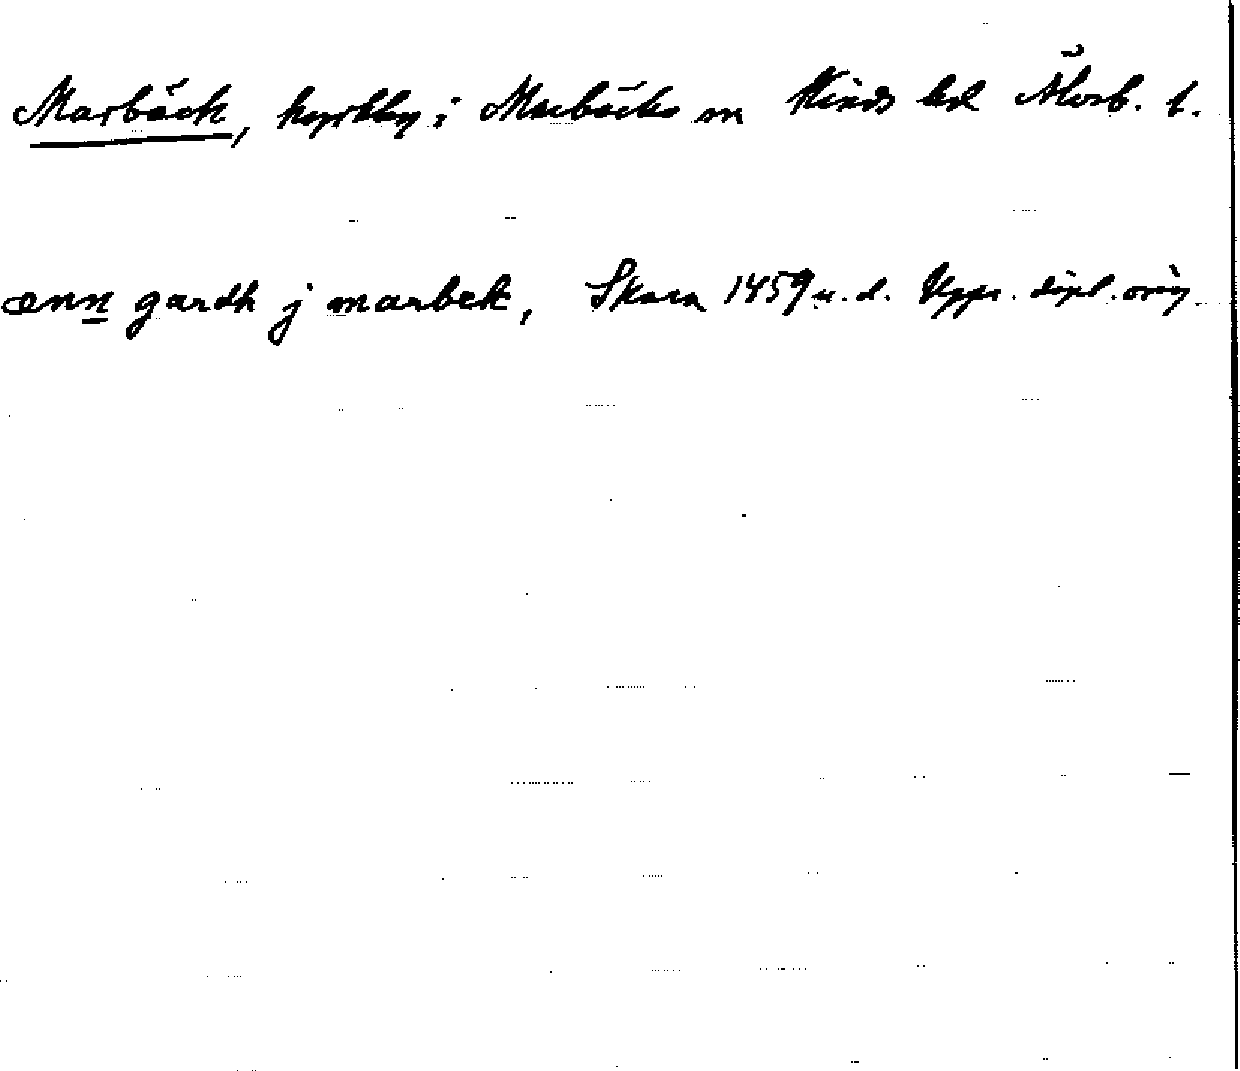 Marbäck, kyrkby i Marbäcks sn Kinds hd Älvsb. l.
enn gardh j marbek, Skara 1459 u. d. Upps. dipl. orig.